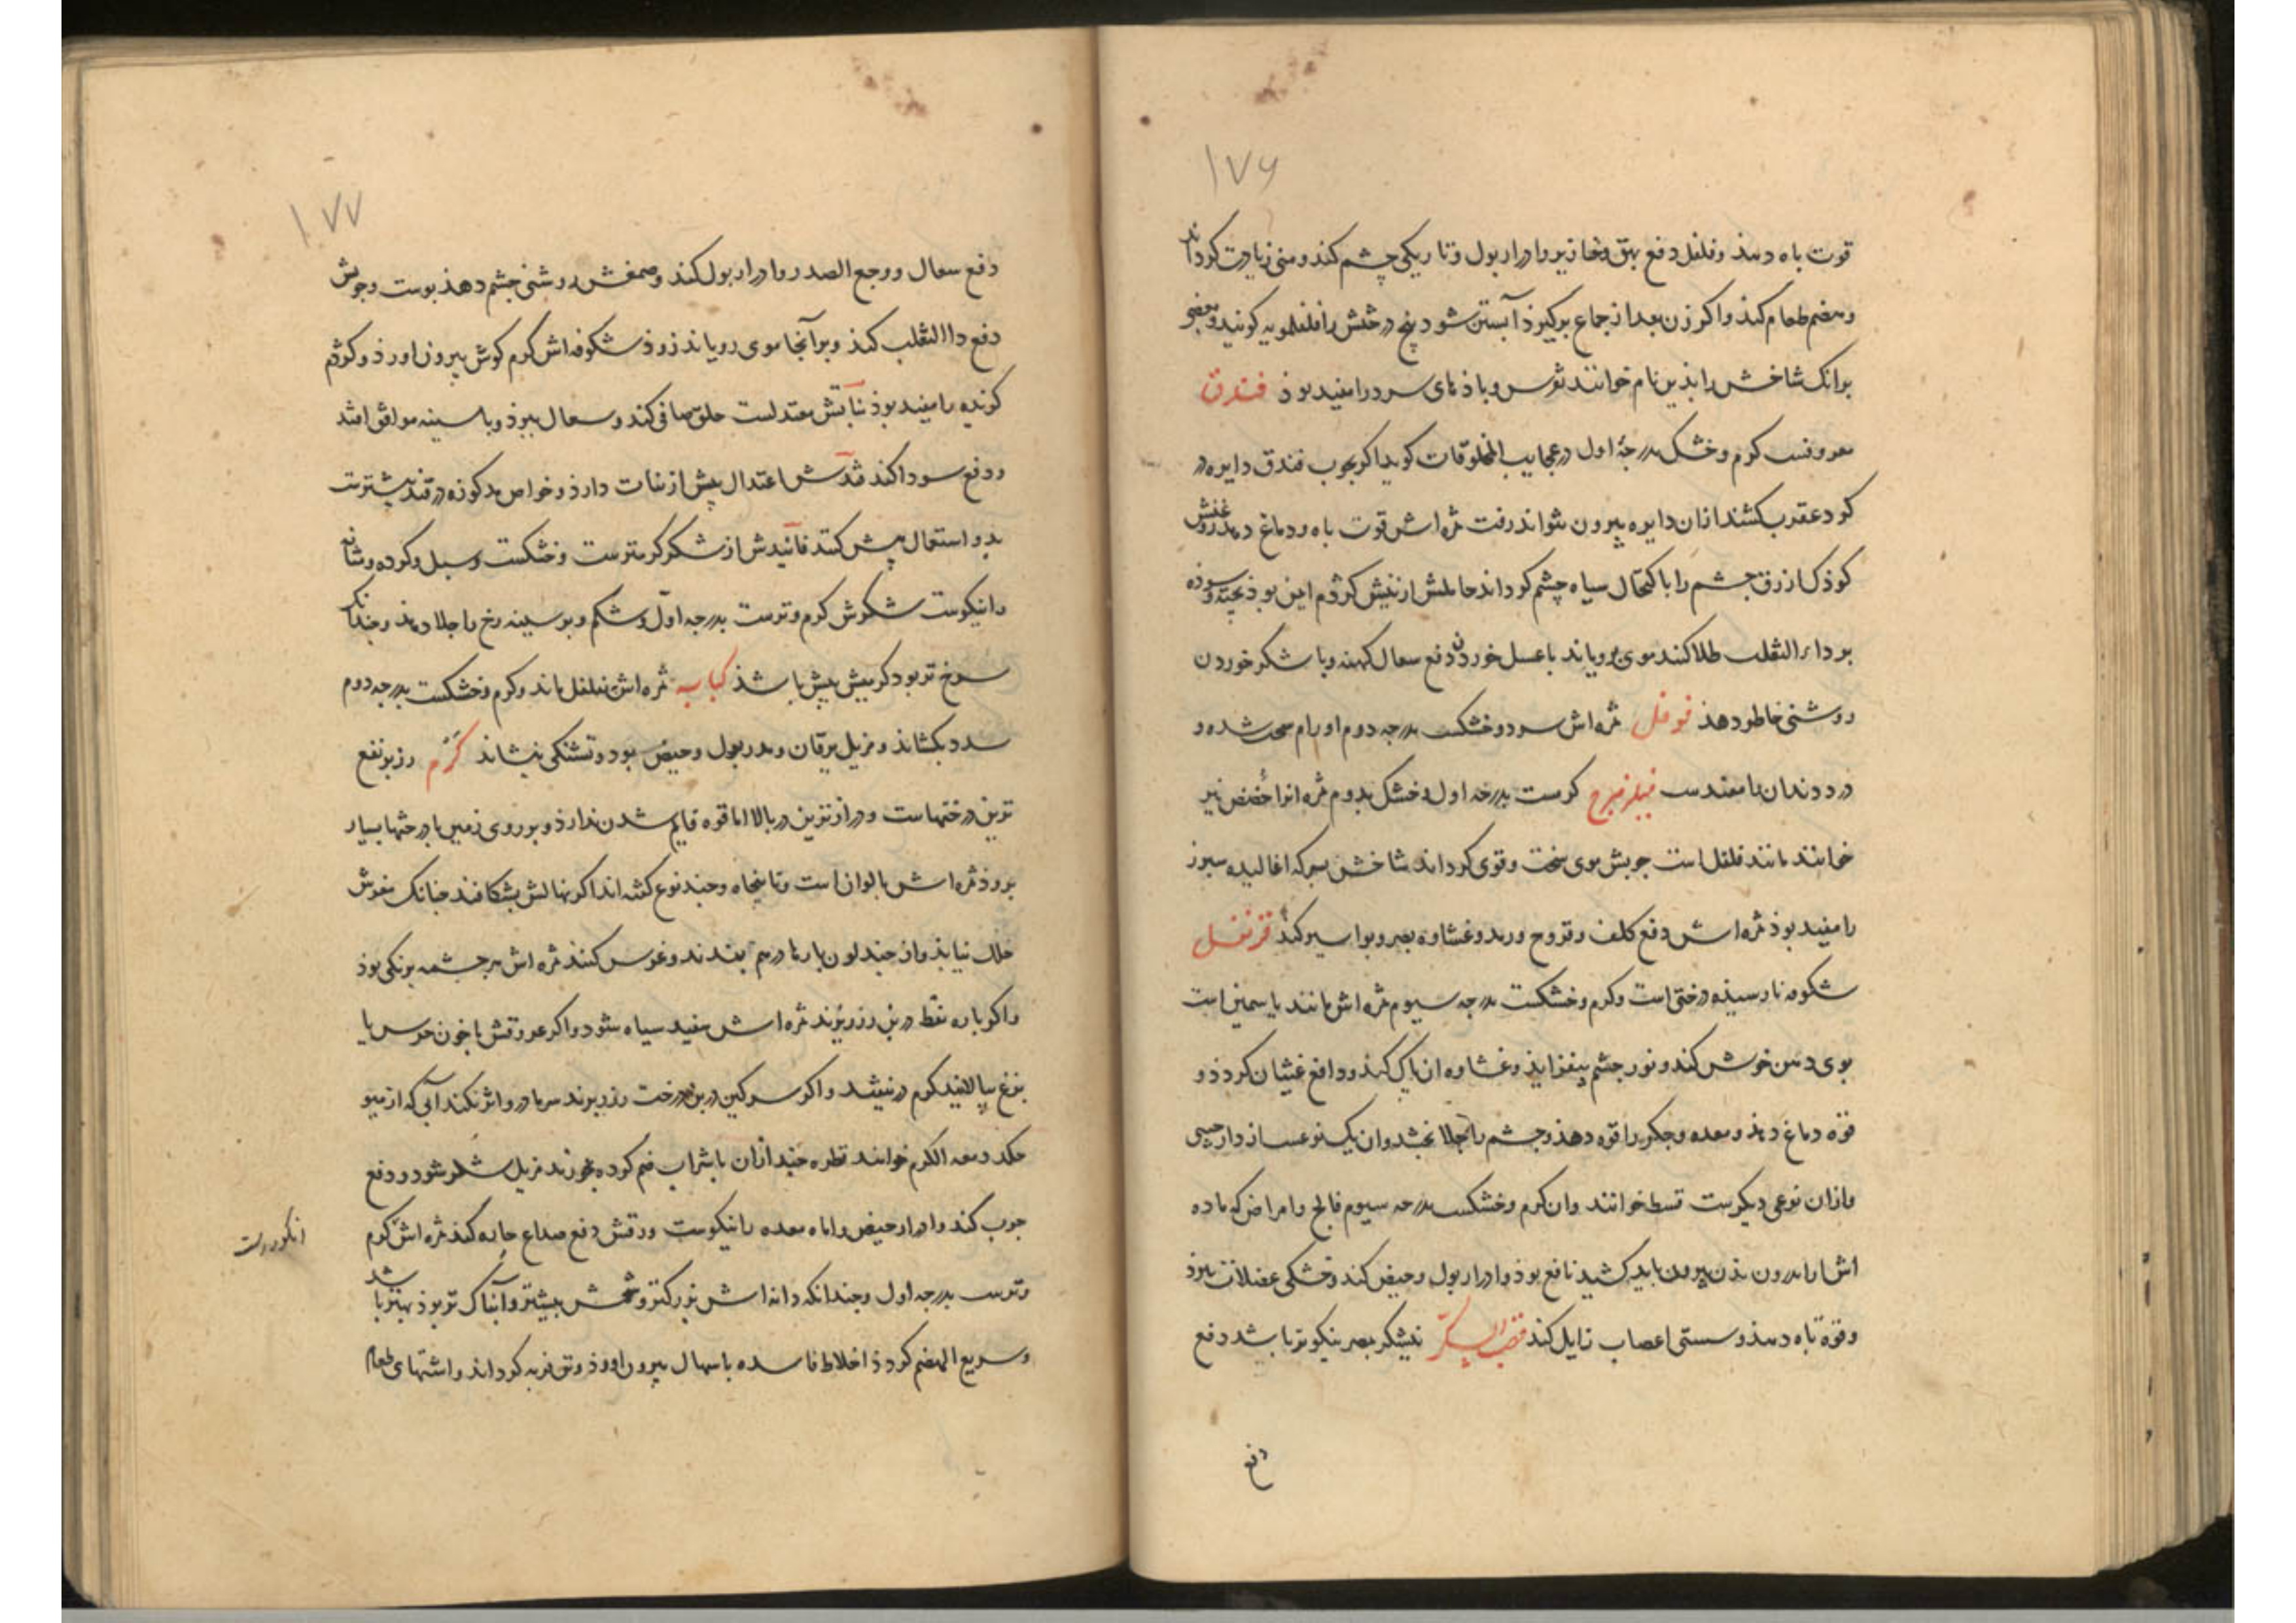 ۱۷۶
قوت باه دهذ و فلفل دفع بهق و خنازیر و ادرار بول و تاریکی چشم کند و منی زیادت کرداند
و هضم طعام کند و اکر زن بعد از جماع برکیرد آبستن شود بیخ درختش را فلفلمویه کویند و بعضی
برانک شاخش را بذین نام خوانند نقرس و باذهای سرد را مفید بوذ فندق
معروفست کرم و خشک بدرجۀ اول در عجایب المخلوقات کوید اکر بچوب فندق دایره در
کرد عقرب کشند ازان دایره بیرون نتواند رفت ثمره اش قوت باه و دماغ دهد روغنش
کوذک ازرق چشم را باکتحال سیاه چشم کرداند حاملش از نیش کژدم ایمن بوذ پخته و سوذه
بر داء الثعلب طلا کنند موی برویاند با عسل خوردن دفع سعال کهنه و با شکر خوردن
روشنی خاطر دهذ فوفل ثمره اش سرد و خشکست بدرجه دوم اورام سخت شده و
درد دندان را مفیدست فیلزهرج کرمست بدرجه اول و خشک بدوم ثمره انرا حضض نیز
خوانند مانند فلفل است چوبش موی سخت و قوی کرداند شاخش بسرکه اغالیده سپرز
را مفید بوذ ثمره اش دفع کلف و قروح و رمد و غشاوه بصر و بواسیر کند قرنفل
شکوفه نارسیذه درختی است و کرم و خشکست بدرجه سیوم ثمره اش مانند یاسمین است
بوی دهن خوش کند و نور چشم بیفزاید و غشاوه ازان پاک کند و دافع غشیان کردذ و
قوه دماغ دهذ و معده و جکر را قوه دهذ و چشم را جلا بخشد وان یک نوعست از دارچینی
وازان نوعی دیکرست قسط خوانند وان کرم و خشکست بدرجه سیوم فالج و امراض که ماده
اش را از درون بذن بیرون باید کشید نافع بوذ و ادرار بول و حیض کند و خشکی عضلات ببرذ
و قوة باه دهذ و سستی اعصاب زایل کند قصب السکر نیشکر بمصر نیکوتر باشد دفع
دفع
۱۷۷
دفع سعال و وجع الصدر و ادرار بول کند و صمغش روشنی چشم دهذ پوست و چوبش
دفع داالثعلب کند و بر آنجا موی رویاند زوذ شکوفه اش کرم کوش بیرون اورذ و کوژدم
کزیده را مفید بوذ نباتش معتدلست حلق صافی کند و سعال ببرذ و با سینه موافق افتد
و دفع سودا کند قندش اعتدال بیش از نبات دارذ و خواص مذکوره در قند بیشترست
بدو استعمال بیش کنند فانیدش از شکر کرمترست و خشکست و سبل و کرده و مثانه
را نیکوست شکرش کرم و ترست بدرجه اول و شکم و بر و سینه و رخ را جلا دهذ و چندانک
سرخ تر بود کرمیش بیش باشذ کبابه ثمره اش بفلفل ماند و کرم و خشکست بدرجه دوم
سدد بکشاند و مزیل یرقان و مدر بول و حیض بود و تشنکی بنشاند کرم رز پر نفع
ترین درختهاست و درازترین در بالا اما قوه قایم شدن ندارذ و بر روی زمین یا درختها بسیار
بروذ ثمره اش بالوان است و تا پنجاه و چند نوع کفته اند اکر نهالش بشکافند چنانک مغزش
خلل نیابذ و از چند لون بارها در هم بندند و غرس کنند ثمره اش هر چشمه برنکی بوذ
و اکر پاره نفط در بن رز ریزند ثمره اش سفید سیاه شود و اکر عروقش با خون خرس یا
بزغ بیالایند کرم در نیفتد و اکر سرکین در بن درخت رز برند سرما درو اثر نکند آبی که از میو
چکد دمعه الکرم خوانند قطره چند ازان با شراب ضم کرده بخورند مزیل شکر شود و دفع
جرب کند و ادرار حیض را اما معده را نیکوست ورقش دفع صداع حاره کند ثمره اش کرم
انکور است
و ترست بدرجه اول و چندانکه دانه اش بزرکتر و شحمش بیشتر و آبناک تر بوذ بهتر باشد
و سریع الهضم کردذ اخلاط فاسده باسهال بیرون اورذ و تن فربه کرداند و اشتهای طعام